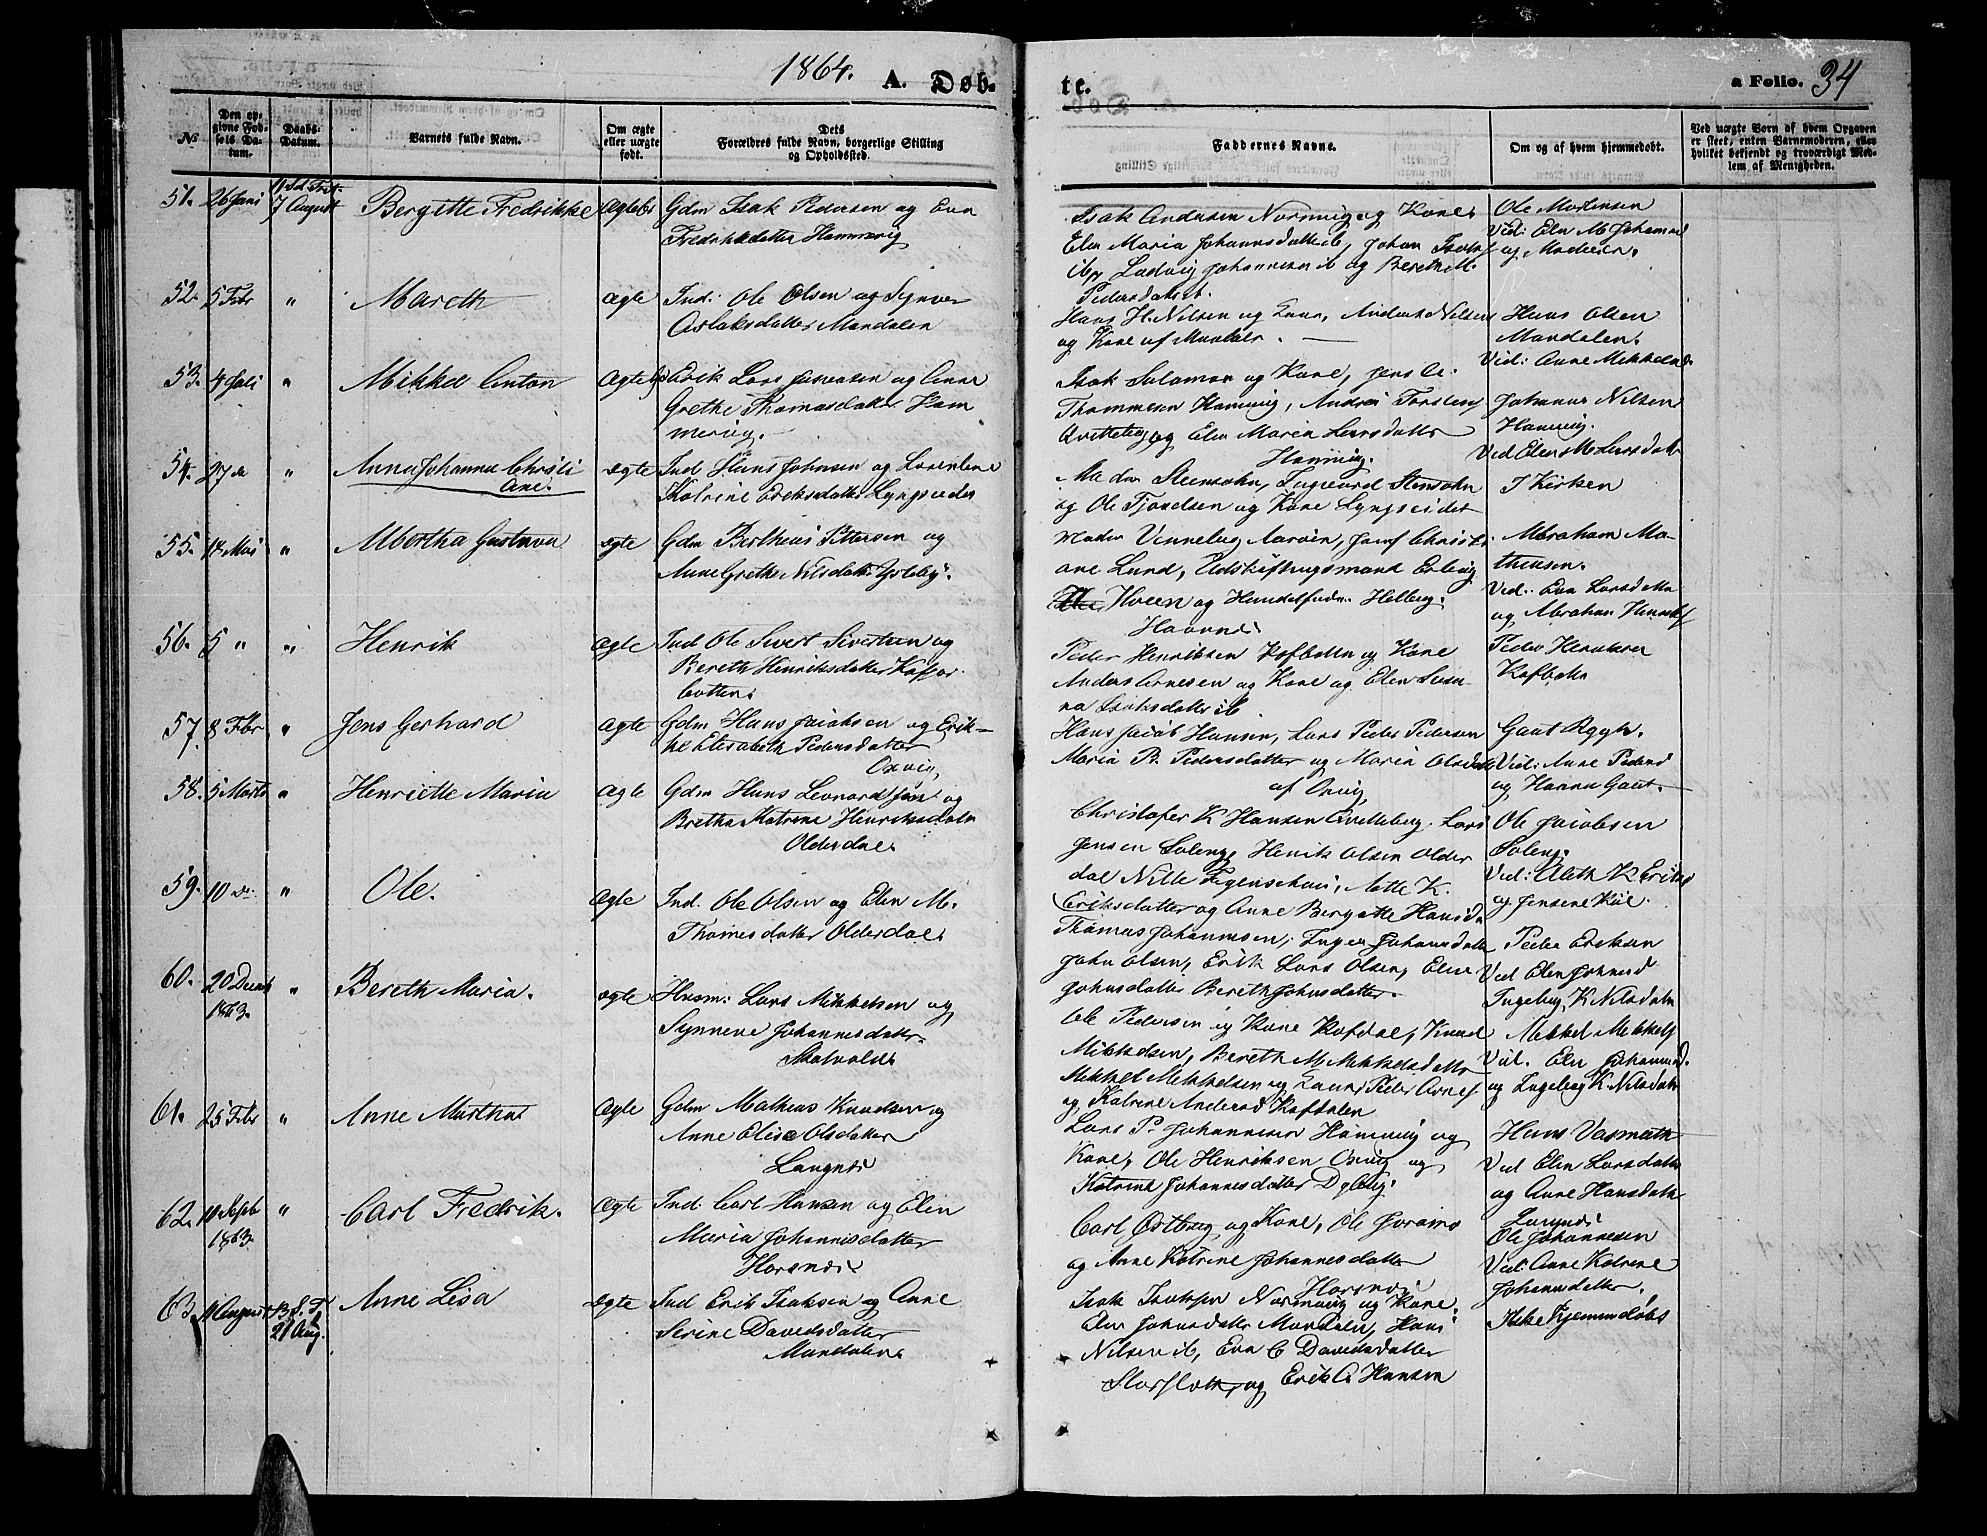 1864.
A. Døb-
te.
a Folio. 34
№
Den op-
givne Fød-
sels Da-
tum.
Daabs-
Datum.
Barnets fulde Navn.
Om ægte
eller uægte
født.
Dets
Forældres fulde Navn, borgerlige Stilling
og Opholdssted.
Faddernes Navne.
Om og af hvem hjemmedøbt.
Ved uægte Børn af hvem Opgaven
er skeet, enten Barnemoderen, eller
hvilket bekjendt og troværdigt Med-
lem af Menigheden.
51. 26 Juni
7 August
Bergitte Fredrikke
Gdm Isak Pedersen og Eva
Fredriksdatter Hammervig
Isak Andersen Normvig og Kone
Elen Maria Johannsdatter ib, Johan Isaks
ib, Ludvig Johannesen ib og Bereth M.
Pedersdatter.
Ole Mortensen
Vid: Elen M Johansd
og Moderen.
52. 5 Febr
"
Mareth
ægte
Ind. Ole Olsen og Synver
Aslaksdatter Mandalen
Hans H. Nilsen og Kone, Anders Nilsen
og Kone af Mandalen.
Hans Olsen
Mandalen.
Vid: Anne Mikkelsd
53. 4 Juli
"
Mikkel Anton
Erik Lars Johnsen og Anne
Grethe Thomasdatter Ham
mervig.
Isak Salamon og Kone, Jens A.
Thommesen Hamvig, Andrea Torstens
Qvitteberg og Elen Maria Larsdatter
Hamvig.
Johannes Nilsen
Hamvig.
Vid Elen M Larsdatter
54. 27 de
"
Anna Johanna Christi
ane.
ægte
Ind Hans Johnsen og Lorentine
Katrine Eriksdatter Lyngseidet
Madm Steensohn, Ingvard Stensohn
og Ole Fjordsen og Kone Lyngseidet
I Kirken
55. 14 Mai
"
Albertha Gustava
ægte
Gdm Bertheus Pettersen og
Anne Grethe Nilsdatter Ysteby.
Madm Venneberg Aarøen, Josef Christi
ane Lund, Udskiftingsmand Erling
Hveen og Handelsfuldm. Helberg.
Havnnes
Abraham Ma-
thiesen.
Vid: Eva Larsdatter
og Abraham Henriks
56. 5 "
"
Henrik
ægte
Ind Ole Sivert Sivertsen og
Bereth Henriksdatter Kaffor
botten.
Peder Henriksen Kofbotn og Kone
Anders Arnesen og Kone og Elen Susa
na Isaksdatter ib
Peder Henriksen
Kofbotn
57. 8 Febr
"
Jens Gerhard
ægte
Gdm Hans Jacobsen og Erik-
ke Elisabeth Pedersdatter
Oxvig
Hans Jacob Hansen, Lars Peder Pedersen
Maria B. Pedersdatter og Maria Olsdatter
af Oxvig
Gaut Rygh.
Vid: Anne Pedersd
og Hanna Gaut.
58. 5 Marts
"
Henriette Maria
ægte
Gdm Hans Leonard Jens og
Bretha Katrine Henriksdatter
Olderdal.
Christofer K Hansen Qvitteberg, Lars
Jensen Soleng, Henrik Olsen Older
dal Nille Figenschau, Aette K.
Eriksdatter og Anne Bergitte Hansd
Ole Jacobsen
Soleng.
Vid: Aleth K Eriksd
og Jensine Kiil.
59. 10 de
"
Ole.
ægte
Ind. Ole Olsen og Elen M.
Thomesdatter Olderdal.
Thomas Johannesen, Inger Johansdatter
John Olsen, Erik Lars Olsen, Elen
Johnsdatter Bereth Johnsdatter.
Peder Eriksen
Vid Elen Johansd
Ingeborg K Nilsdatter
60. 20 Decemb
1863.
"
Bereth Maria.
ægte
Husm: Lars Mikkelsen og
Synneve Johannesdatter
Skatvold
Ole Pedersen og Kone Kofdal, Knud
Mikkelsen, Bereth M Mikkelsdatter
Mikkel Mikkelsen og Kone, Peder Arnes
og Katrine Andersd Kofdalen
Mikkel Mikkels
Vid. Elen Johannsd.
og Ingeborg K Nilsdatter
61. 25 Febr
"
Anne Martha
ægte
Gdm Mathias Knudsen og
Anne Elise Olsdatter
Langnes
Lars P. Johannesen Hamvig og
Kone, Ole Henriksen Oxvig og
Katrine Johannesdatter Dybvig.
Hans Vasmuth
Vid Elen Larsdatter
og Anne Hansdatter
Langnes
62. 14 Septb
1863.
"
Carl Fredrik.
ægte
Ind: Carl Hansen og Elen
Maria Johannisdatter
Horsnes
Carl Østberg og Kone, Ole Joramo
og Anne Katrine Johannesdatter
Horsnes
Ole Johannesen
Vid: Anne Katrine
Johannsdatter.
63. 11 August
13 S. T.
21 Aug.
Anne Lisa
ægte
Ind Erik Isaksen og Anne
Serine Davedsdatter
Mandalen.
Isak Isaksen Normvig og Kone.
Elen Johansdatter Mandalen, Hans
Nilsen ib, Eva C Davedsdatter
Storsletten og Erik A Hansen
Ikke hjemmedøbt